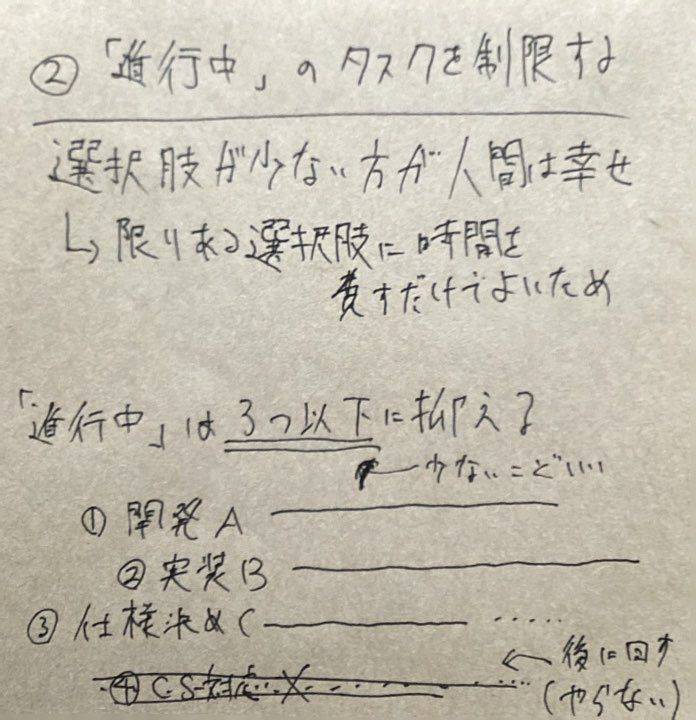 ② 「進行中」のタスクを制限する
選択肢が少ない方が人間は幸せ
↳ 限りある選択肢に時間を
費すだけでよいため
「進行中」は3つ以下に抑える
←少ないこどいい
① 開発A
② 実装B
③ 仕様決めC
←後に回す
④ CS対応 X
(やらない)